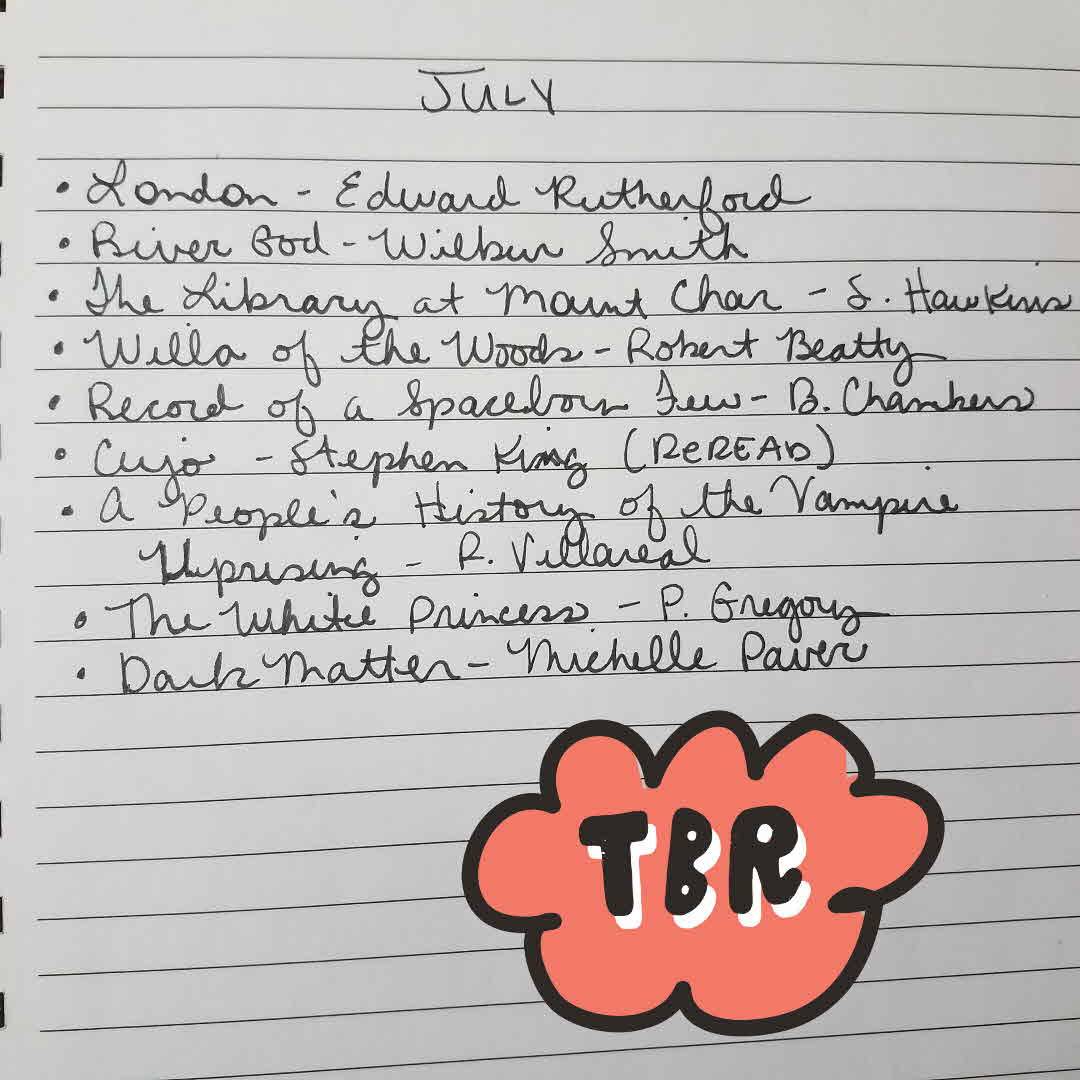 JULY
• London - Edward Rutherford
• River God - Wilbur Smith
• The Library at Mount Char - S. Hawkins
• Willa of the Woods - Robert Beatty
• Record of a Spaceborn Few - B. Chambers
• Cujo - Stephen King (REREAD)
• A People's History of the Vampire
Uprising - R. Villareal
• The White Princess - P. Gregory
• Dark Matter - Michelle Paver
TBR